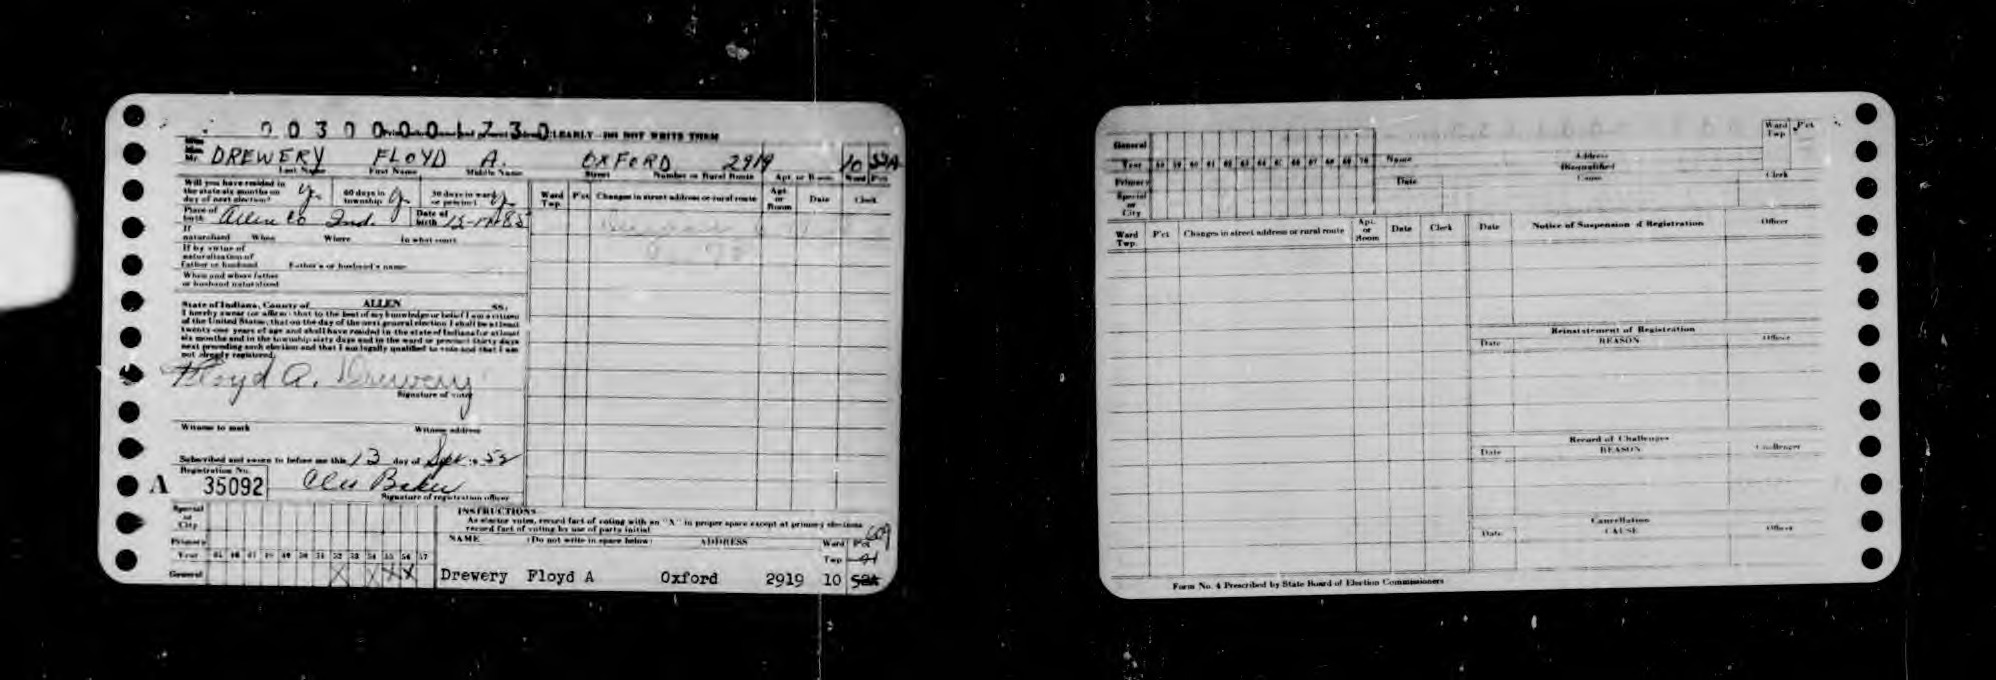 CLEARLY - DO NOT WRITE THEM
Mr. DREWERY FLOYD A. OXFORD 2919 10 52A
Last Name First Name Middle Name Street Number or Rural Route Apt. or Room Ward Pct
Will you have resided in the state six months on day of next election? Yes 60 days in township Yes 30 days in ward or precinct Yes
Place of birth Allen Co Ind. Date of birth
If naturalized When Where In what court
If by virtue of naturalization of Father or husband Father's or husband's name
When and where father or husband naturalized
Ward Twp. P'ct Changes in street address or rural route Apt. or Room Date Clerk
State of Indiana, County of ALLEN ss.
I hereby swear (or affirm) that to the best of my knowledge or belief I am a citizen
of the United States; that on the day of the next general election I shall be at least
twenty-one years of age and shall have resided in the state of Indiana for at least
six months and in the township sixty days and in the ward or precinct thirty days
next preceding such election and that I am legally qualified to vote and that I am
not already registered.
Floyd A. Drewery
Signature of voter
Witness to mark Witness address
Subscribed and sworn to before me this 13 day of Sept 1952
Registration No.
A 35092 Baker
Signature of registration officer
INSTRUCTIONS
As elector votes, record fact of voting with an "X" in proper space except at primary elections
record fact of voting by use of party initial
Special or City
Primary
Year 45 46 47 48 49 50 51 52 53 54 55 56 57
General X X X X
NAME (Do not write in space below) ADDRESS Ward Twp Pct 609
Drewery Floyd A Oxford 2919 10 52A
General
Year 58 59 60 61 62 63 64 65 66 67 68 69 70
Primary
Special or City
Name Address Ward Twp P'ct
Disqualified
Date Cause Clerk
Ward Twp. P'ct Changes in street address or rural route Apt. or Room Date Clerk
Date Notice of Suspension of Registration Officer
Reinstatement of Registration
Date REASON Officer
Record of Challenges
Date REASON Challenger
Cancellation
Date CAUSE Officer
Form No. 4 Prescribed by State Board of Election Commissioners